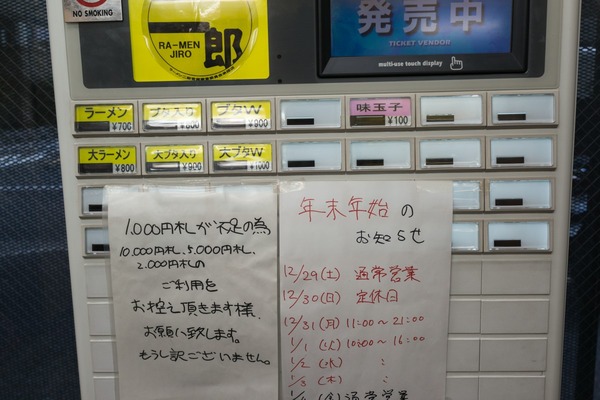 NO SMOKING
郎
RA-MEN
JIRO
発売中
TICKET VENDOR
multi-use touch display
ラーメン ¥700
ブタ入り ¥800
ブタW ¥900
味玉子 ¥100
大ラーメン ¥800
大ブタ入り ¥900
大ブタW ¥1000
1.000円札が不足の為
10.000円札、5.000円札、
2.000円札の
ご利用を
お控え頂きます様、
お願い致します。
もうし訳ございません。
年末年始の
お知らせ
12/29(土) 通常営業
12/30(日) 定休日
12/31(月) 11:00~21:00
1/1(火) 10:00~16:00
1/2(水) :
1/3(木) :
1/4(金) 通常営業